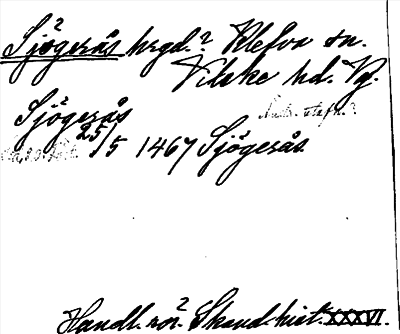 Sjögerås hrgd.? Klefva sn.
Vilske hd. Vg.
Sjögerås
25/5 1467 Sjögerås.
Handl. rör. Skand. hist. XXXVI.